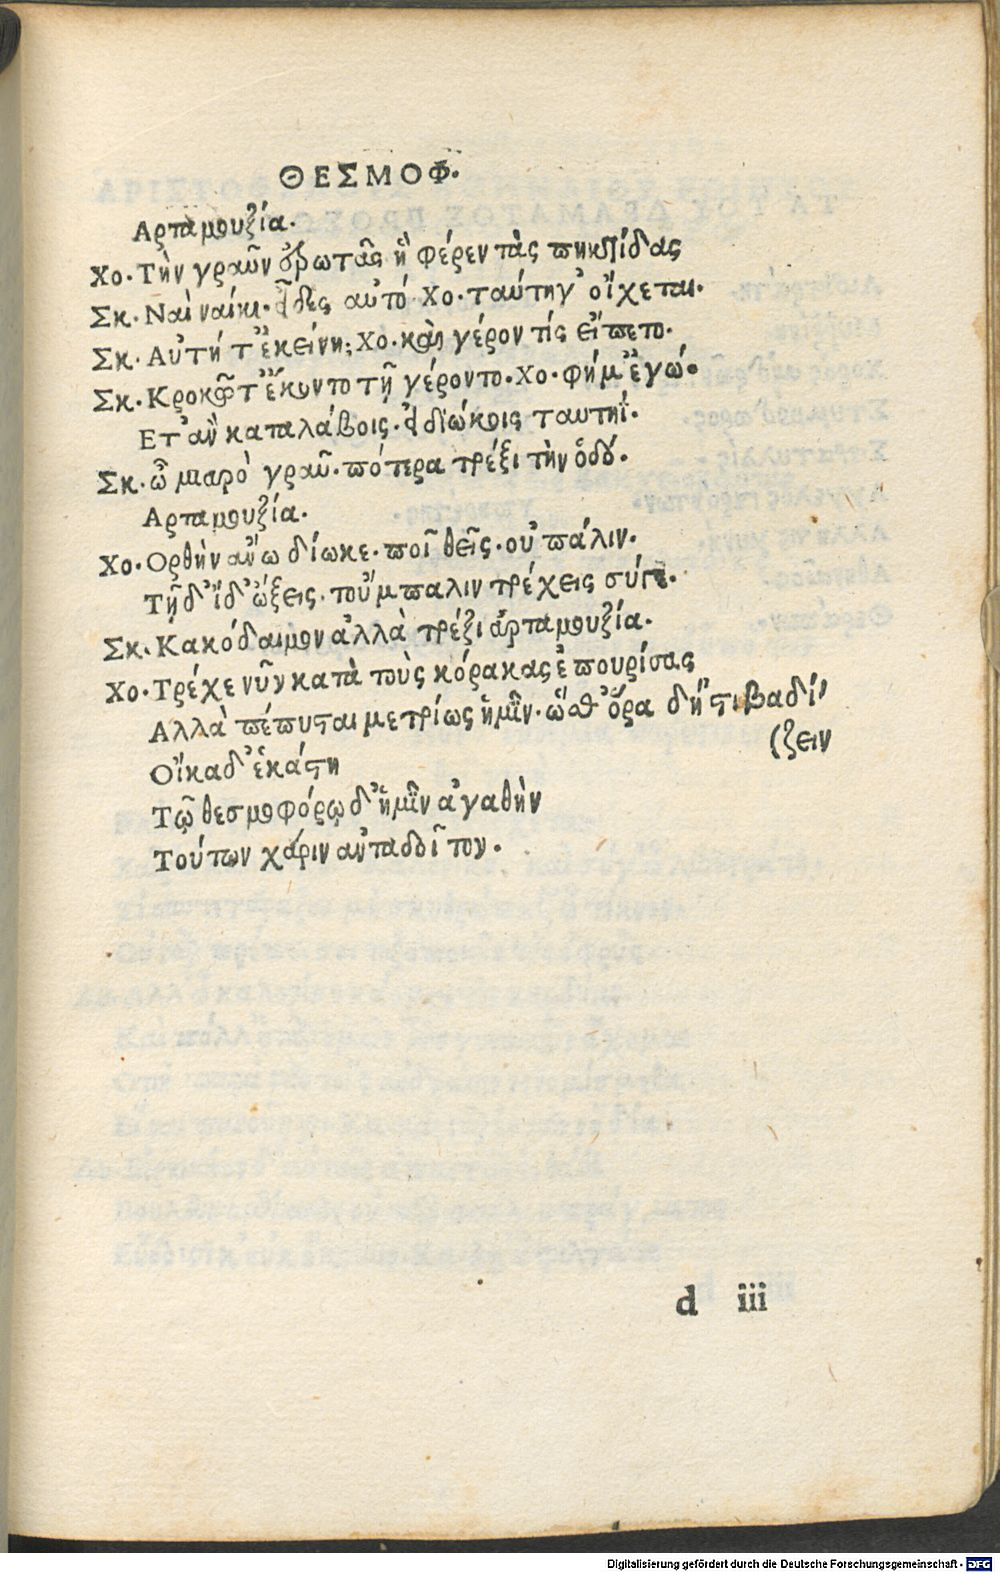 ΘΕΣΜΟΦ.
Αρταμουξία.
Χο. Τὴν γραῦν ἐρωτᾷς ἣ φέρεν τὰς πηκτίδας
Σκ. Ναὶ ναίκι. εἶδες αὐτό Χο. ταύτῃ γ' οἴχεται.
Σκ. Αὐτή τ' ἐκείνη; Χο. καὶ γέρον τίς εἵπετο.
Σκ. Κροκῶτ' ἔκοντο τῆ γέροντο. Χο. φήμ' ἐγώ.
Ετ' ἂν καταλάβοις. εἰ διώκοις ταυτηΐ.
Σκ. ὦ μιαρὸ γραῦ. πότερα τρέξι τὴν ὁδό.
Αρταμουξία.
Χο. Ορθὴν ἄνω δίωκε. ποῖ θεῖς. οὐ πάλιν.
Τῇδ' ἳ διώξεις. τοὔμπαλιν τρέχεις σύγε.
Σκ. Κακόδαιμον ἀλλὰ τρέξι ἀρταμουξία.
Χο. Τρέχε νῦν κατὰ τοὺς κόρακας ἐπουρίσας
Αλλὰ πέπυσται μετρίως ἡμῖν. ὥσθ' ὅρα δή 'στι βαδί
(ζειν
Οἴκαδ' ἑκάστῃ
Τῶ θεσμοφόρω δ' ἡμῖν ἀγαθὴν
Τούτων χάριν ἀνταδοῖτον.
d iii
Digitalisierung gefördert durch die Deutsche Forschungsgemeinschaft - DFG